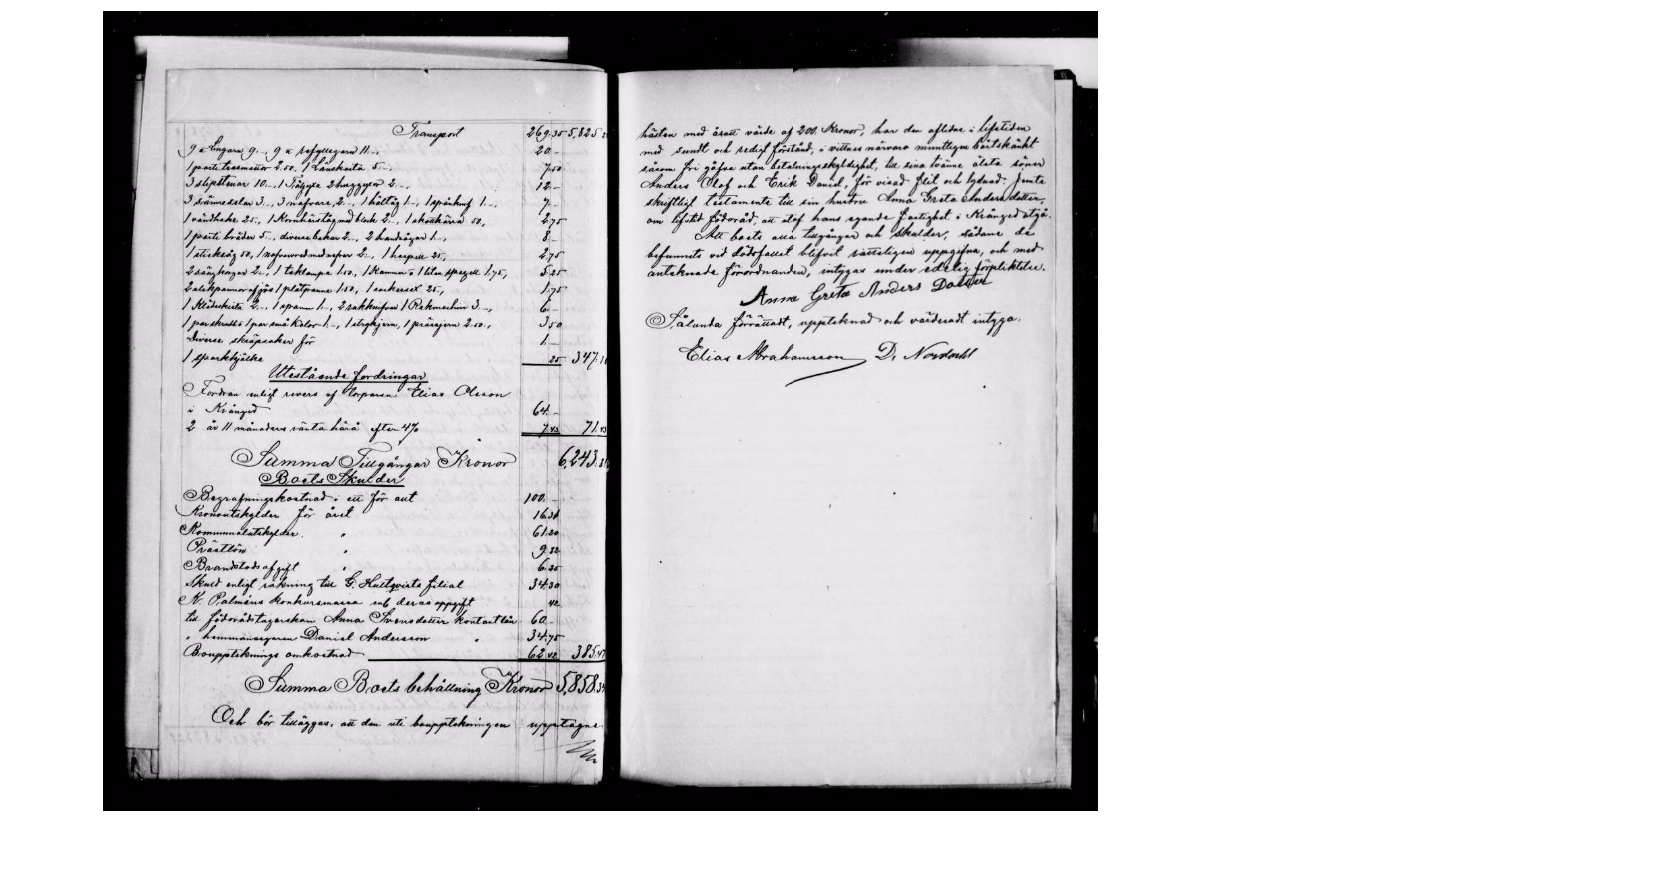 Transport 269.35 5,825.
9 u Lingarn 9.–, 9 u refflegarn 11.–, 20.–
1 parti trasmattor 2.50, 1 Länskista 5.–, 7.50
3 slipstenar 10.–, 1 Tälgyxa 2 huggyxor 2.–, 12.–
3 3.–, 3 nafvare, 2.–, 1 båltåg 1.–, 1 spånknif 1.–, 7.–
1 vändhake 25, 1 2.–, 1 skoskära 50, 2.75
1 parti bräder 5.–, diverse bakar 2.–, 2 handsågar 1.–, 8.–
1 sticksåg 50, 1 nafvarord med nafvar 2.–, 1 harpell 25, 2.75
2 sängkragar 2.–, 1 taklampa 1.50, 1 Kamma o 1 liten spegel 1.75, 5.25
2 stekpannor af jös 1 plåtpanna 1.50, 1 sockersax 25, 1.75
1 Klädeskista 2.–, 1 spann 1.–, 2 sakknifvar 1 Rakmaskin 3.–, 6.–
1 par skrabb o 1 par små Kälor 1.–, 1 strykjern, 1 2.50, 3.50
Diverse skräpsaker för 1.–
1 sparkkjälke 25 347.
Utestående fordringar
Fordran enligt revers af torparen Elias Olsson
i Krånged 64.–
2 år 11 månaders ränta härå efter 4% 7.43 71.43
Summa Tillgångar Kronor 6,243.
Boets Skulder
Begrafningskostnad i ett för allt 100.–
Kronoutskylder för året 16.31
Kommunalutskylder " 61.20
Prästlön " 9.82
Brandstodsafgift " 6.25
Skuld enligt räkning till G. Hultqvists filial 34.30
K. Palméns konkursmassa enl. deras uppgift 42
till födorådstagerskan Anna Svensdotter kontant lån 60.–
" hemmansegaren Daniel Andersson " 34.75
Bouppteknings omkostnad 62.42 385.47
Summa Boets behållning Kronor 5,858.
Och bör tilläggas, att den uti bouppteckningen upptagne
hästen med åsatt värde af 200 Kronor, har den aflidne i lifstiden
med sundt och redigt förstånd, i vittnes närvaro muntligen bortskänkt
såsom fri gåfva utan betalningsskyldighet, till sina tvänne älsta söner
Anders Olof och Erik Daniel, för visad flit och lydnad: Jemte
skriftligt testamente till sin hustru Anna Greta Andersdotter,
om lifstid födoråd, att utaf hans egande fastighet i Krånged utgå.
Att boets alla tillgångar och skulder, sådane de
befunnits vid dödsfallet blifvit samteligen uppgifna, och med
antecknade förordnanden, intygas under edelig förpliktelse.
Anna Greta Anders Dotter
Sålunda förrättadt, upptecknad och värderadt intyga.
Elias Abrahamsson D. Nordahl